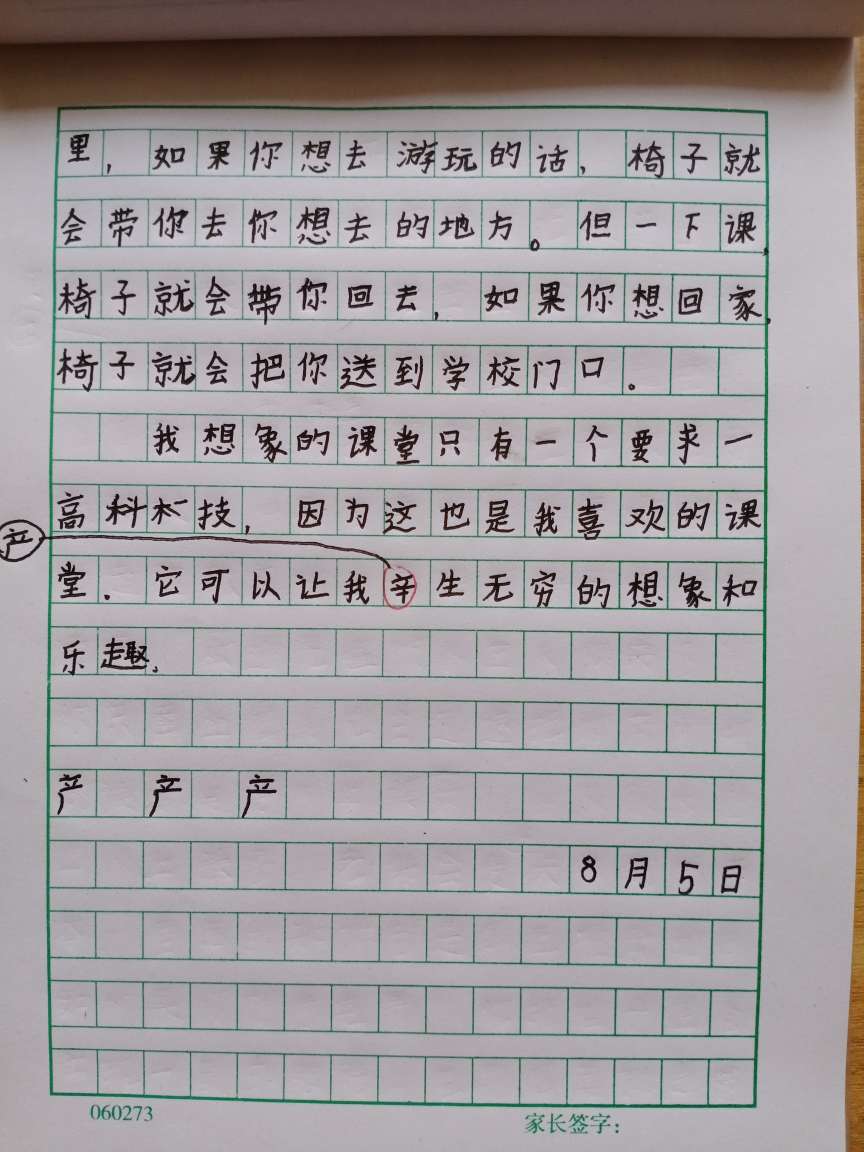 里，如果你想去游玩的话，椅子就
会带你去你想去的地方。但一下课，
椅子就会带你回去，如果你想回家，
椅子就会把你送到学校门口。
我想象的课堂只有一个要求一
高科技，因为这也是我喜欢的课
产
堂．它可以让我辛生无穷的想象和
乐趣．
产 产 产
8月5日
060273
家长签字：